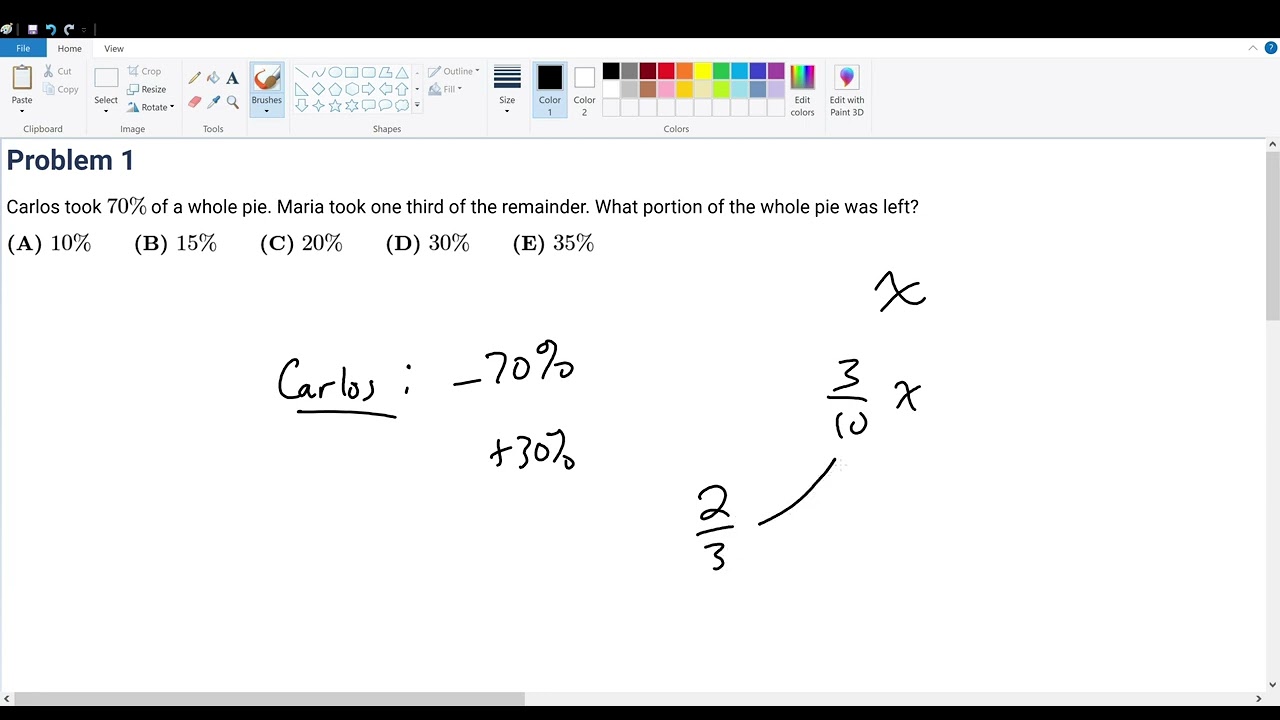 File Home View
Paste Cut Copy Clipboard
Select Crop Resize Rotate Image
A Tools
Brushes
Outline Fill Shapes
Size
Color 1 Color 2 Edit colors Colors
Edit with Paint 3D
Problem 1
Carlos took 70% of a whole pie. Maria took one third of the remainder. What portion of the whole pie was left?
(A) 10% (B) 15% (C) 20% (D) 30% (E) 35%
x
Carlos : -70%
3/10 x
+30%
2/3